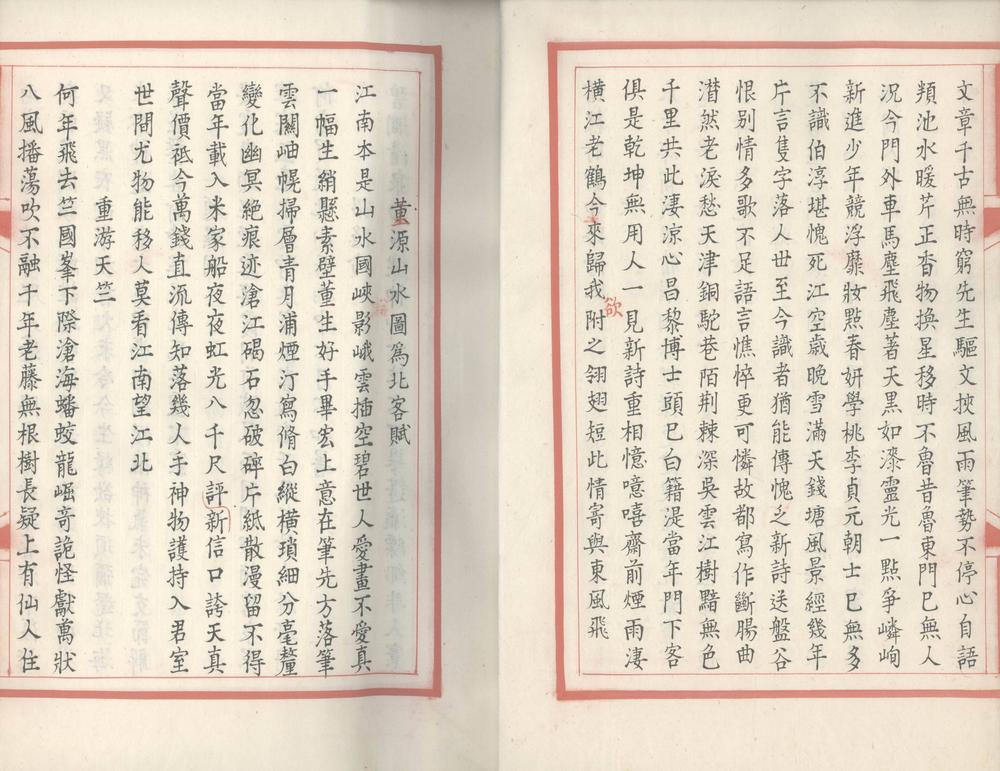 文章千古無時窮先生驅文挾風雨筆勢不停心自語
頖池水暖芹正香物換星移時不魯昔魯東門已無人
況今門外車馬塵飛塵著天黑如漆靈光一點爭嶙峋
新進少年競浮靡妝點春妍學桃李貞元朝士已無多
不識伯淳堪愧死江空歲晚雪滿天錢塘風景經幾年
片言隻字落人世至今識者猶能傳愧乏新詩送盤谷
恨别情多歌不足語言憔悴更可憐故都寫作斷腸曲
潸然老淚愁天津銅駝巷陌荆棘深吳雲江樹黯無色
千里共此淒涼心昌黎博士頭已白籍湜當年門下客
俱是乾坤無用人一見新詩重相憶噫嘻齋前煙雨淒
橫江老鶴今來歸我附之翎翅短此情寄與東風飛
欲
董源山水圖爲北客賦
江南本是山水國峽影峨雲插空碧世人愛畫不愛真
一幅生綃懸素壁董生好手畢宏上意在筆先方落筆
雲關岫幌掃層青月浦煙汀寫脩白縱橫瑣細分毫釐
變化幽冥絶痕迹滄江碣石忽破碎片紙散漫留不得
當年載入米家船夜夜虹光八千尺評新信口誇天真
聲價祗今萬錢直流傳知落幾人手神物護持入君室
世間尤物能移人莫看江南望江北
重游天竺
何年飛去竺國峯下際滄海蟠蛟龍崛奇詭怪獻萬狀
八風播蕩吹不融千年老藤無根樹長疑上有仙人住